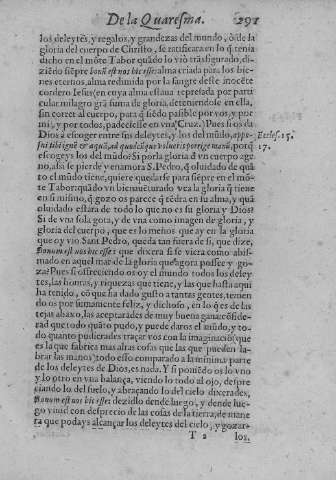 De la Quaresma. 291
los deleytes, y regalos, y grandezas del mundo, ò de la
gloria del cuerpo de Christo, se ratificara en lo q̃ tenia
dicho en el mõte Tabor quãdo lo viò trãsfigurado, di-
ziẽdo siẽpre bonũ est nos hic esse: alma criada para los bie-
nes eternos, alma redimida por la sangre deste inocẽte
cordero Iesus (en cuya alma estaua represada por parti-
cular milagro grã suma de gloria, deteniendole en ella,
sin correr al cuerpo, para q̃ siẽdo pasible por vos, y por
mi, y por todos, padeciesse en vna Cruz.) Pues si os da
Dios à escoger entre sus deleytes, y los del mũdo, appo-
sui tibi ignẽ & aquã, ad quodcũque volueris porrige manũ, porq̃
Eccles. 15.
17.
escogeys los del mũdo? Si por la gloria d' vn cuerpo age-
no, assi se pierde y enamora S. Pedro, q̃ oluidado de quã
to el mũdo tiene, quiere quedarse para siẽpre en el mõ-
te Tabor: quãdo vn bienauẽturado vea la gloria q̃ tiene
en si mismo, q̃ gozo os parece q̃ tẽdra en su alma, y quã
oluidado estara de todo lo que no es su gloria y Dios?
Si de vna sola gota, y de vna como imagen de gloria, y
gloria del cuerpo, que es lo menos que ay en la gloria
que oy vio Sant Pedro, queda tan fuera de si, que dize,
Bonum est nos hic esse: que dixera si se viera como abis-
mado en aquel mar de la gloria que agora possee y go-
za? Pues si ofreciendo os oy el mundo todos los deley
tes, las honras, y riquezas que tiene, y las que hasta aqui
ha tenido, cõ que ha dado gusto a tantas gentes, temen-
do os por sumamente feliz, y dichoso, en lo q̃ es de las
tejas abaxo, las aceptarades de muy buena gana: cõside-
rad que todo quãto pudo, y puede daros el mũdo, y to-
do quanto pudierades traçar vos con la imaginaciõ (que
es la que fabrica mas altas cosas que las que pueden la-
brar las manos) todo esso comparado a la minima parte
de los deleytes de Dios, es nada. Y si ponẽdo os lo vno
y lo otro en vna balança, viendo lo todo al ojo, despre
ciando lo del suelo, y abraçando lo del cielo dixerades,
Bonum est nos hic esse: dezidlo dende luego, y dende lue-
go viuid con desprecio de las cosas de la tierra, de mane
ra que podays alcançar los deleytes del cielo, y gozar-
T 2 los.